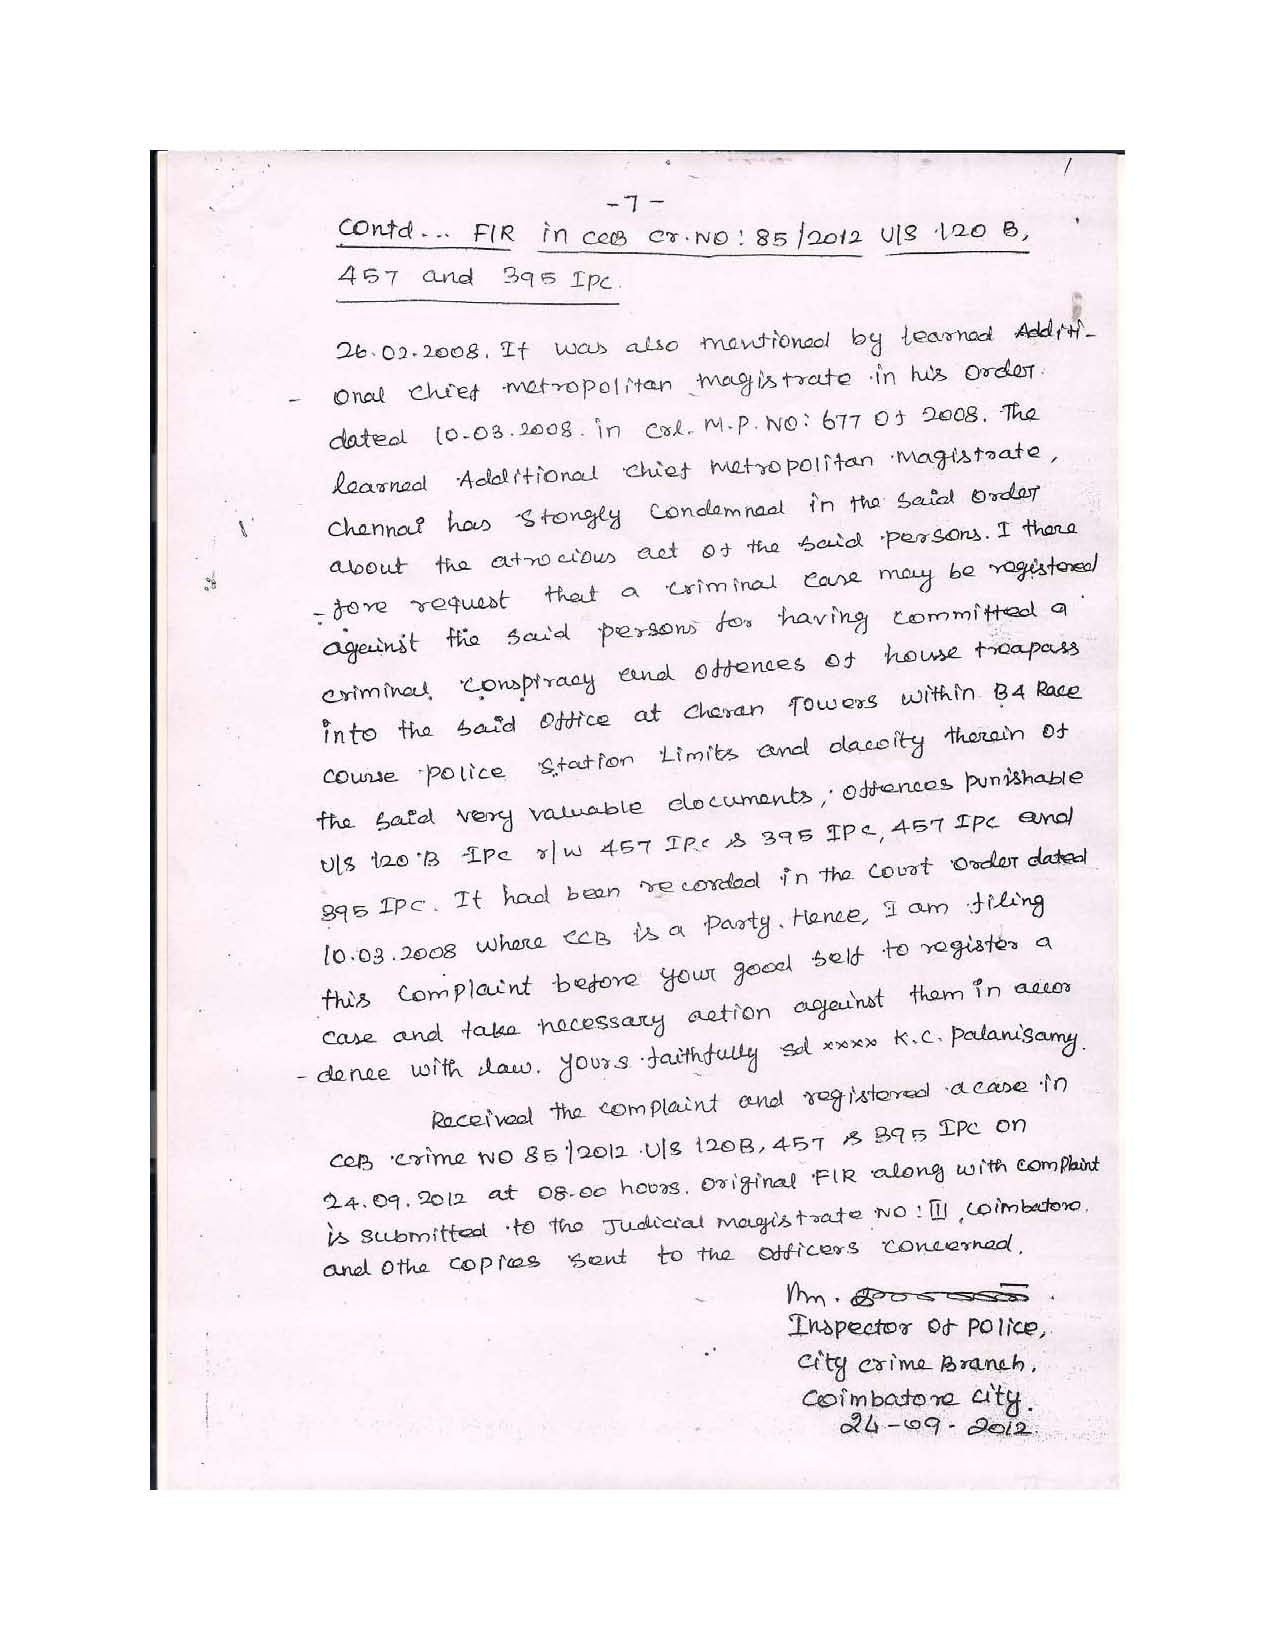 -7-
Contd... FIR in CCB Cr.NO: 85/2012 U/S 120 B,
457 and 395 IPC.
26.02.2008. It was also mentioned by learned Additi-
onal Chief Metropolitan Magistrate in his order
dated 10.03.2008 in Crl. M.P. NO: 677 of 2008. The
learned Additional Chief Metropolitan Magistrate,
Chennai has Stongly Condemned in the said order
about the atrocious act of the said persons. I there
- fore request that a criminal case may be registered
against the said persons for having committed a
criminal conspiracy and offences of house treapass
into the said office at Cheran Towers within B4 Race
Course Police Station Limits and dacoity therein of
the said very valuable documents, offences punishable
U/S 120 B IPC r/w 457 IPC & 395 IPC, 457 IPC and
395 IPC. It had been recorded in the Court order dated
10.03.2008 where CCB is a party. Hence, I am filing
this complaint before your good self to register a
case and take necessary action against them in accor
- dence with law. Yours faithfully sd xxxx K.C. Palanisamy.
Received the complaint and registered a case in
CCB Crime NO 85/2012 U/S 120B, 457 & 395 IPC on
24.09.2012 at 08-00 hours. Original FIR along with complaint
is submitted to the Judicial Magistrate NO: III, Coimbatore.
and othe copies sent to the officers concerned.
Inspector of Police,
City Crime Branch,
Coimbatore City.
24-09-2012